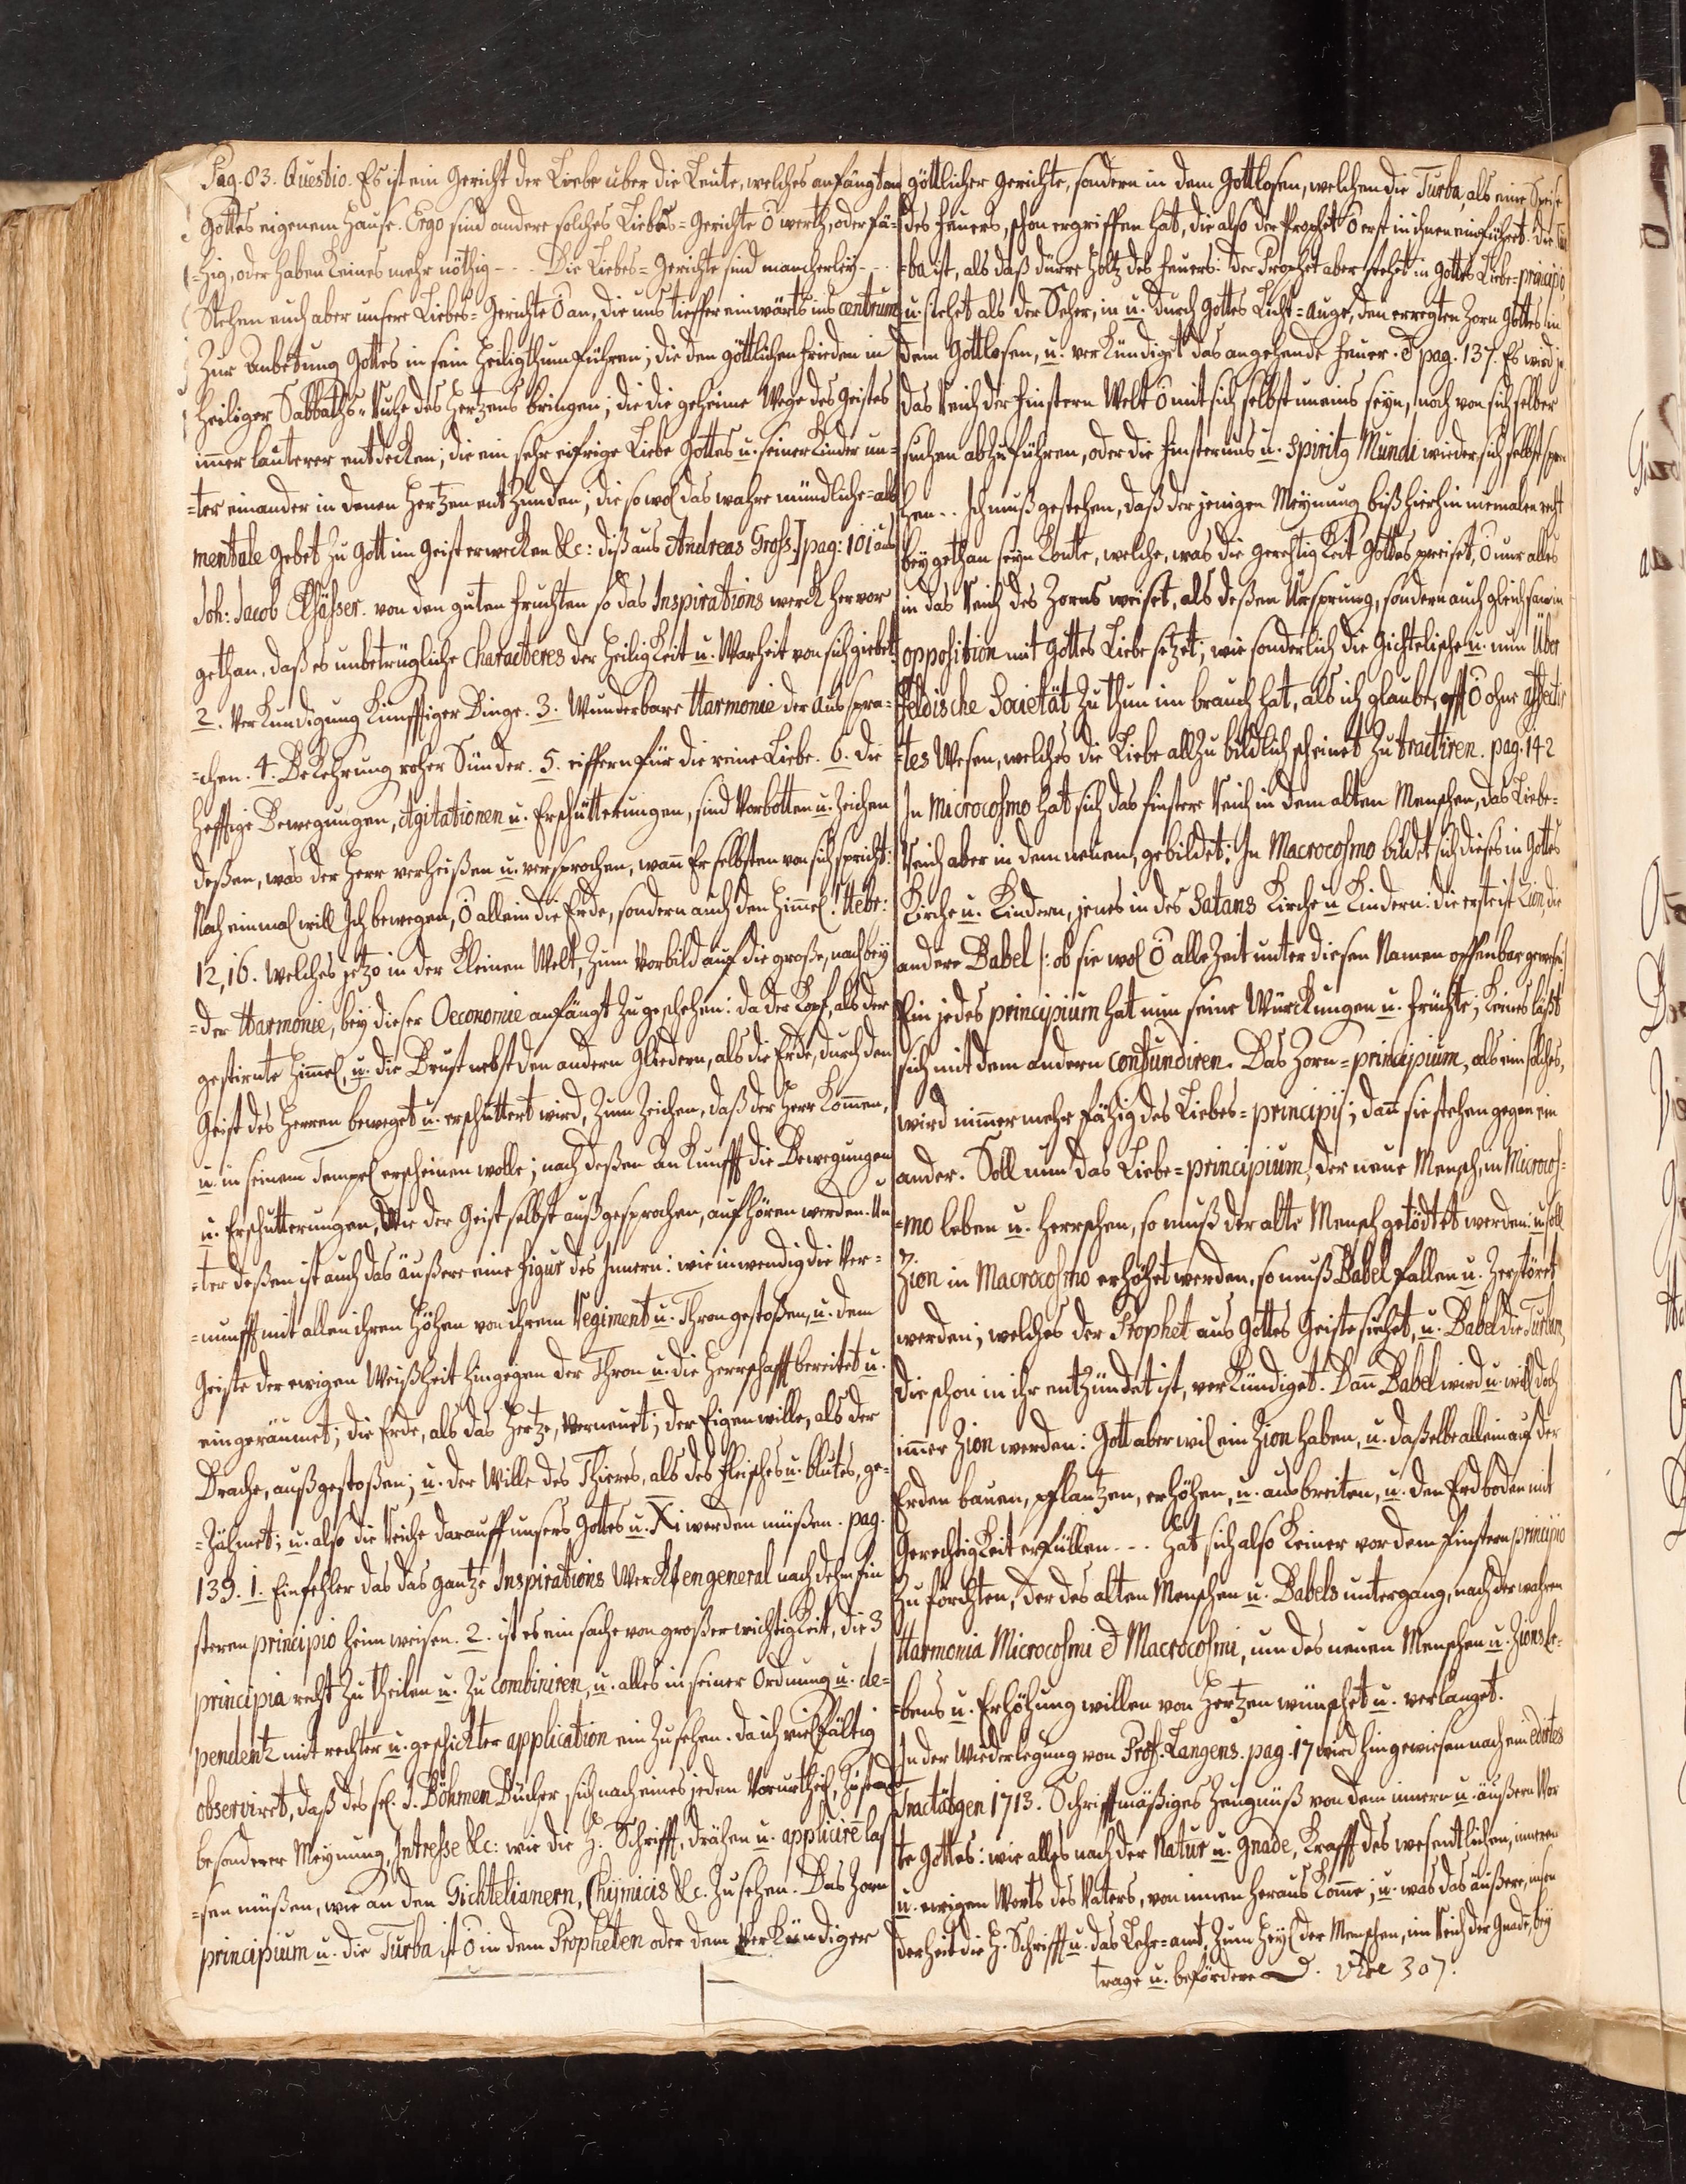 Pag. 83. Questio. Es ist ein Gericht der Liebe über die Leute, welches anfängt an
Gottes eigenem Hause. Ergo sind andere solches Liebes=Gerichte ō werth, oder fä=
=hig, oder haben keines mehr nöthig - - . Die Liebes=Gerichte sind mancherley - .
Stehen euch aber unsere Liebes=Gerichte ō an, die uns tieffer einwärts ins centrum
Zur Anbetung Gottes in sein Heiligthum führen; die den göttlichen frieden in
heiliger Sabbaths=Ruhe des Hertzens bringen; die die geheime Wege des Geistes
immer lauterer entdecken; die ein sehr eifrige Liebe Gottes u. seiner Kinder un=
=ter einander in denen Hertzen entzünden; die so wol das wahre mündliche= als
mentale Gebet zu Gott im Geist erwecken &c: diß aus Andreas Groß.] pag: 101 aus
Joh: Jacob Elsässer. von den guten fruchten so das Inspirations werck hervor
gethan, daß es unbetrügliche Characteres der Heiligkeit u. Warheit von sich giebet.
2. Verkündigung künfftiger Dinge. 3. Wunderbare Harmonie der Ausspra=
=chen. 4. Bekehrung roher Sünder. 5. eiffern für die reine Liebe. 6. Die
hefftige Bewegungen, Agitationen u. Erschütterungen, sind Vorbotten u. Zeichen
deßen, was der Herr verheißen u. versprochen, wañ Er selbsten von sich spricht:
Noch einmal will Ich bewegen, ō allein die Erde, sondern auch den Him̃el. Hebr:
12, 16. welches jetzo in der kleinen Welt, zum Vorbild auf die große, nach bey=
=der Harmonie, bey dieser Oeconomie anfängt zu geschehen: da der Kopf, als der
gestirnte Him̃el, u. die Brust nebst den andern Gliedern, als die Erde, durch den
Geist des Herren beweget u. erschüttert wird, zum Zeichen, daß der Herr kom̃en,
u. in seinem Tempel erscheinen wolle; nach deßen Ankunfft die Bewegungen
u. Erschütterungen, Wie der Geist selbst außgesprochen, aufhören werden. Un
=ter deßen ist auch das äußere eine Figur des Innern: wie inwendig die Ver=
=nunfft mit allen ihren Höhen von ihrem Regiment u. Thron gestoßen, u. dem
Geiste der ewigen Weißheit hingegen der Thron u. die Herrschafft bereitet u.
eingeräumet; die Erde, als das Hertze, verneuet; der Eigenwille, als der
Drache, außgestoßen; u. der Wille des Thieres, als des Fleisches u. blutes, ge=
=zähmet; u. also die Reiche darauff unsers Gottes u. Xi werden müßen. pag.
139. 1. Ein fehler das das gantze Inspirations Werck en general nach dehm fin
steren principio heim weisen. 2. ist es ein sache von großer wichtigkeit, die 3
principia recht zu theilen u. zu combiniren, u. alles in seiner Ordnung u. de=
pendentz mit rechter u. geschickter application ein zu sehen. da ich vielfältig
observiret, daß des sel. J. Böhmen Bücher sich nach eines jeden Vorurtheil, Zustand
besonderer Meynung, Intresse &c: wie die H. Schrifft, drähen u. applicirē las
=sen müßen, wie an den Gichtelianern, Chymicis &c. zu sehen. Das Zorn
principium u. die Turba ist ō in dem Propheten oder dem Verkündiger
göttlicher Gerichte, sondern in dem Gottlosen, welchen die Turba, als eine Speise
des Feuers, schon ergriffen hat, die also der Prophet ō erst in ihnen einführet. Die Tur
=ba ist, als daß dürre Holtz des feuers: der Prophet aber stehet in Gottes Liebe=principio,
u. siehet als der Seher, in u. durch Gottes Licht=auge, den erregten Zorn Gottes in
dem Gottlosen, u. verkündiget das angehende Feuer. & pag. 137. Es wird je
das Reich der finstern Welt ō mit sich selbst uneins seyn, noch von sich selber
suchen abzuführen, oder die finsternus u. Spiritg Mundi wieder sich selbst spre
chen - - Ich muß gestehen, daß der jenigen Meynung biß hierhin niemalen recht
beygethan seyn konte, welche, was die gerechtigkeit Gottes preiset, ō nur alles
in das Reich des Zorns weiset, als deßen Ursprung, sondern auch gleichsam in
opposition mit Gottes Liebe setzet; wie sonderlich die Gichtelische u. nun Über
feldische Societät zu thun im brauch hat, als ich glaube, offt ō ohne affectir
=tes Wesen, welches die Liebe allzu bildlich scheinet zu tractiren. pag. 142
In Microcosmo hat sich das finstere Reich in dem alten Menschen, das Liebe=
Reich aber in dem neuen, gebildet; In Macrocosmo bildet sich dieses in Gottes
Kirche u. Kindern, jenes in des Satans Kirche u Kindern: die erste ist Zion, die
andere Babel |: ob sie wol ō alle Zeit unter diesen Namen offenbar gewesen:|
Ein jedes principium hat nun seine Würckungen u. früchte; keines läßt
sich mit dem andern confundiren. Das Zorn=principium, als ein solches,
wird nimmermehr fähig des Liebes=principij; dañ sie stehen gegen ein
ander. Soll nun das Liebe=principium, der neue Mensch, in Microcos=
=mo leben u. herrschen, so muß der alte Mensch getödtet werden: u soll
Zion in Macrocosmo erhöhet werden, so muß Babel fallen u. zerstöret
werden; welches der Prophet aus Gottes Geiste siehet, u. Babel die Turbam,
die schon in ihr entzündet ist, verkündiget. Dañ Babel wird u. will doch
im̃er Zion werden: Gott aber wil ein Zion haben, u. daßelbe allein auf der
Erden bauen, pflantzen, erhöhen, u. ausbreiten, u. den Erdboden mit
Gerechtigkeit erfüllen - - - Hat sich also keiner vor dem finstern principio
zu förchten, der des alten Menschen u. Babels untergang, nach der wahren
Harmonia Microcosmi & Macrocosmi, um des neuen Menschen u. Zions le=
=bens u. Erhöhung willen von Hertzen wünschet u. verlanget.
In der Wiederlegung von Prof. Langens. pag. 17 wird hingewiesen nach ein edirtes
Tractätgen 1713. Schrifftmäßiges Zeugnüß von dem innern u. äußern Wor
te Gottes: wie alles nach der Natur u. Gnade, Krafft des wesentlichen, inneren
u. ewigen Worts des Vaters, von innen heraus kom̃e; u. was das äußere, inson
derheit die H. Schrifft u. das Lehr=amt, zum Heyl der Menschen, im Reich der Gnade, bey
trage u. befördere. Vide 307.